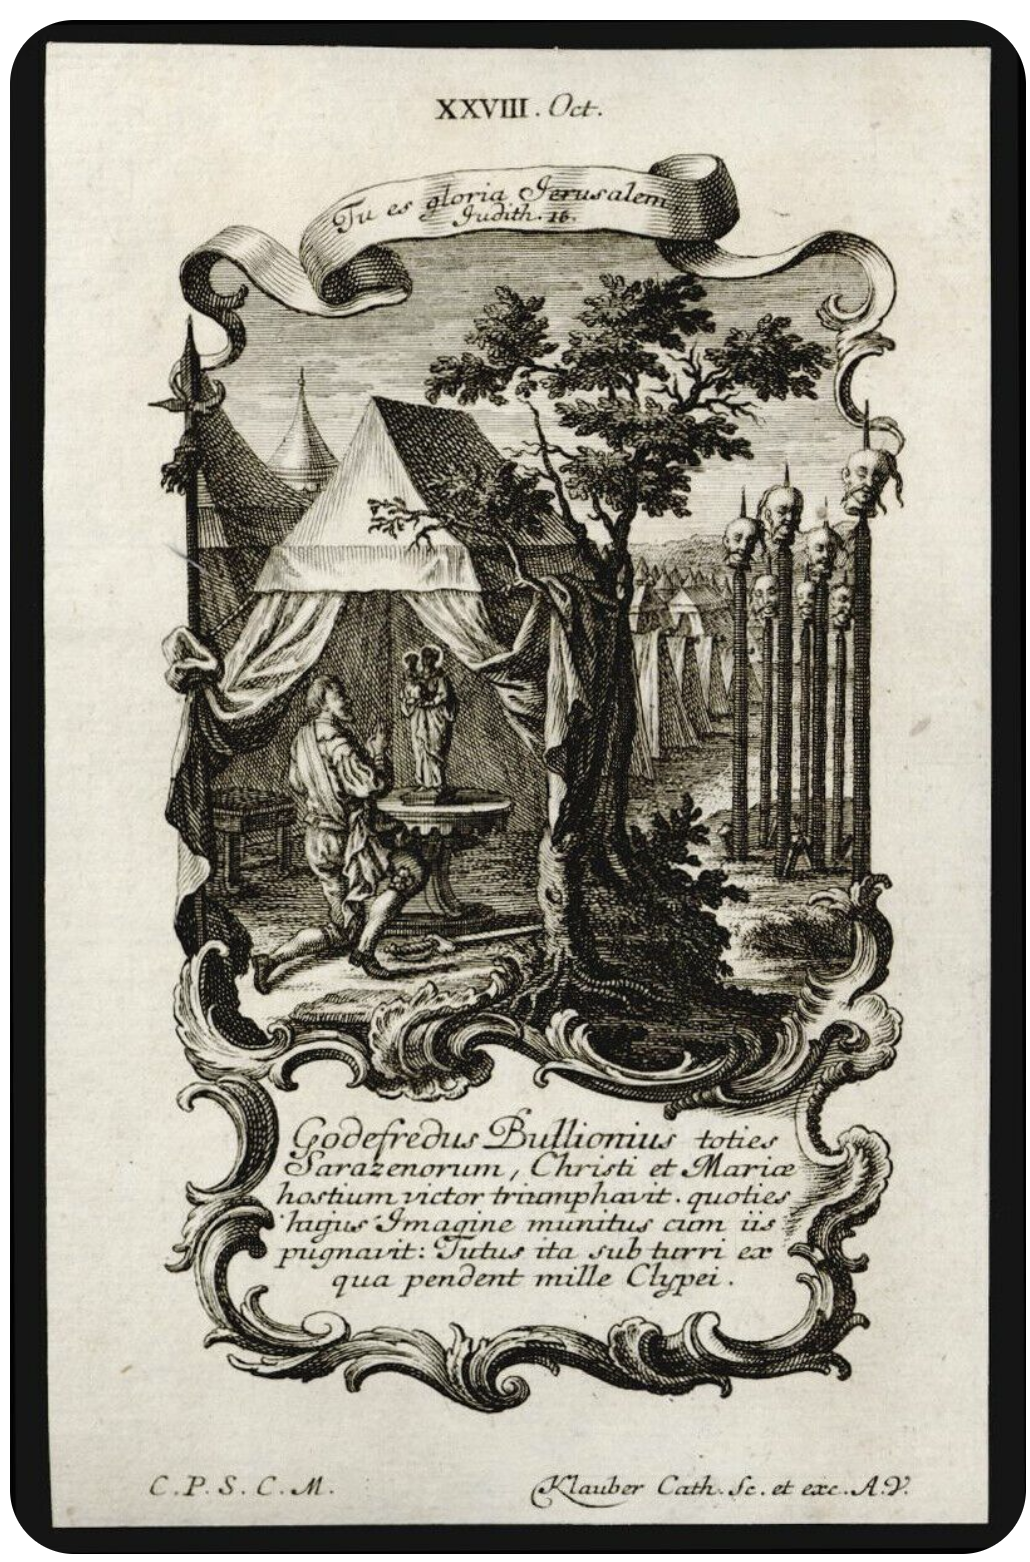 XXVIII. Oct.
Tu es gloria Jerusalem
Judith. 16.
Godefredus Bullionius toties
Sarazenorum, Christi et Mariæ
hostium victor triumphavit. quoties
hujus Imagine munitus cum iis
pugnavit: Tutus ita sub turri ex
qua pendent mille Clypei.
C. P. S. C. M.
Klauber Cath. Sc. et exc. A. V.